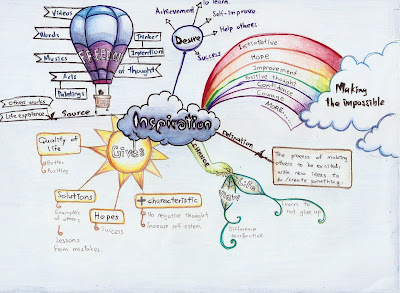 Videos
Words
Musics
Arts
Paintings
Others works
Life expirience
Source
FREEDOM
Thinker
Intention
of thought
Achievement
To learn
Self-improve
Help others
Success
Desire
Initiative
Hope
Improvement
Positive thought
Confidence
Courage
Making
the impossible
Inspiration
Quality of
life
Better
Positive
Gives
Solutions
Examples
of others
lessons
from mistakes
Hopes
Success
+ characteristic
No negative thought
Increase self-estem
Definition
The process of making
others to be excited
with new ideas to
do/create something.
Life
View
Different
perspective
Learn to
not give up